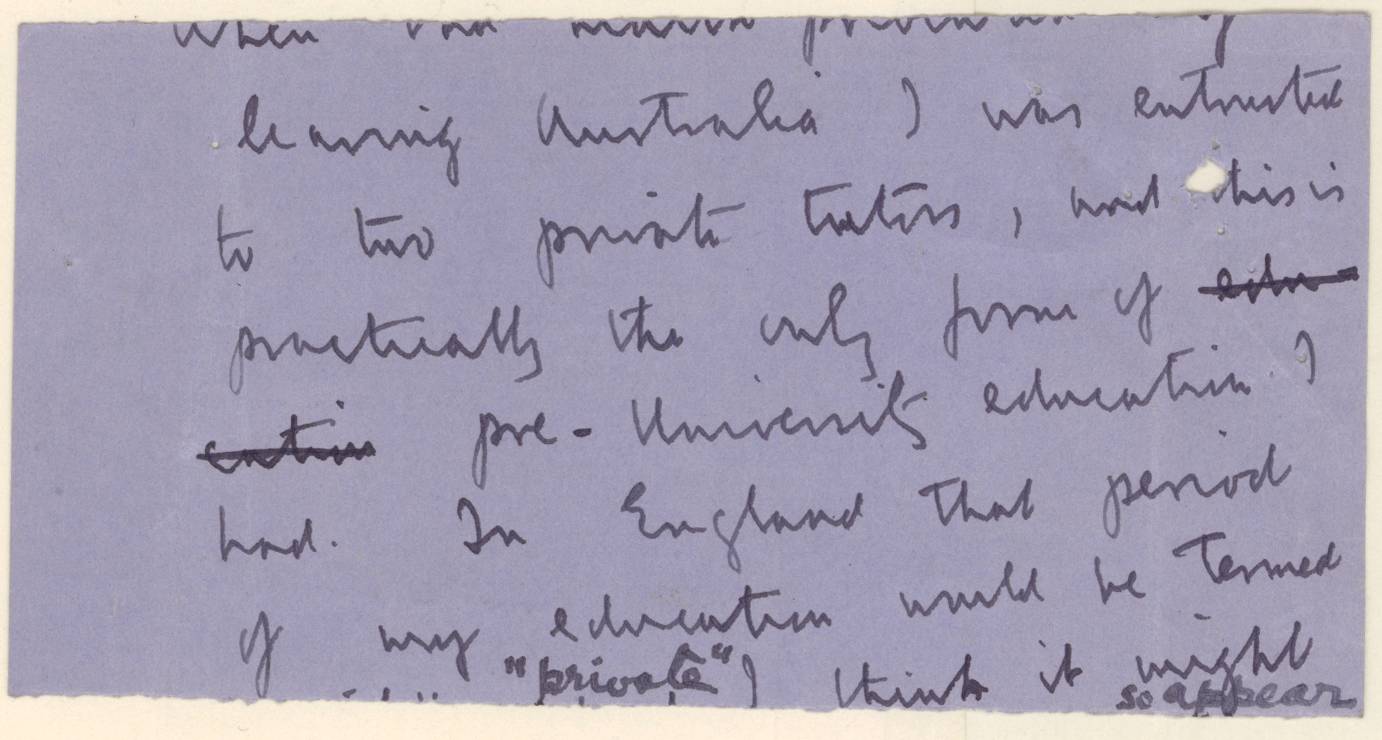 When
leaving Australia I was entrusted
to two private tutors, and this is
practically the only form of edu-
cation pre-University education I
had. In England that period
of my education would be termed
"private" I think it might
so appear